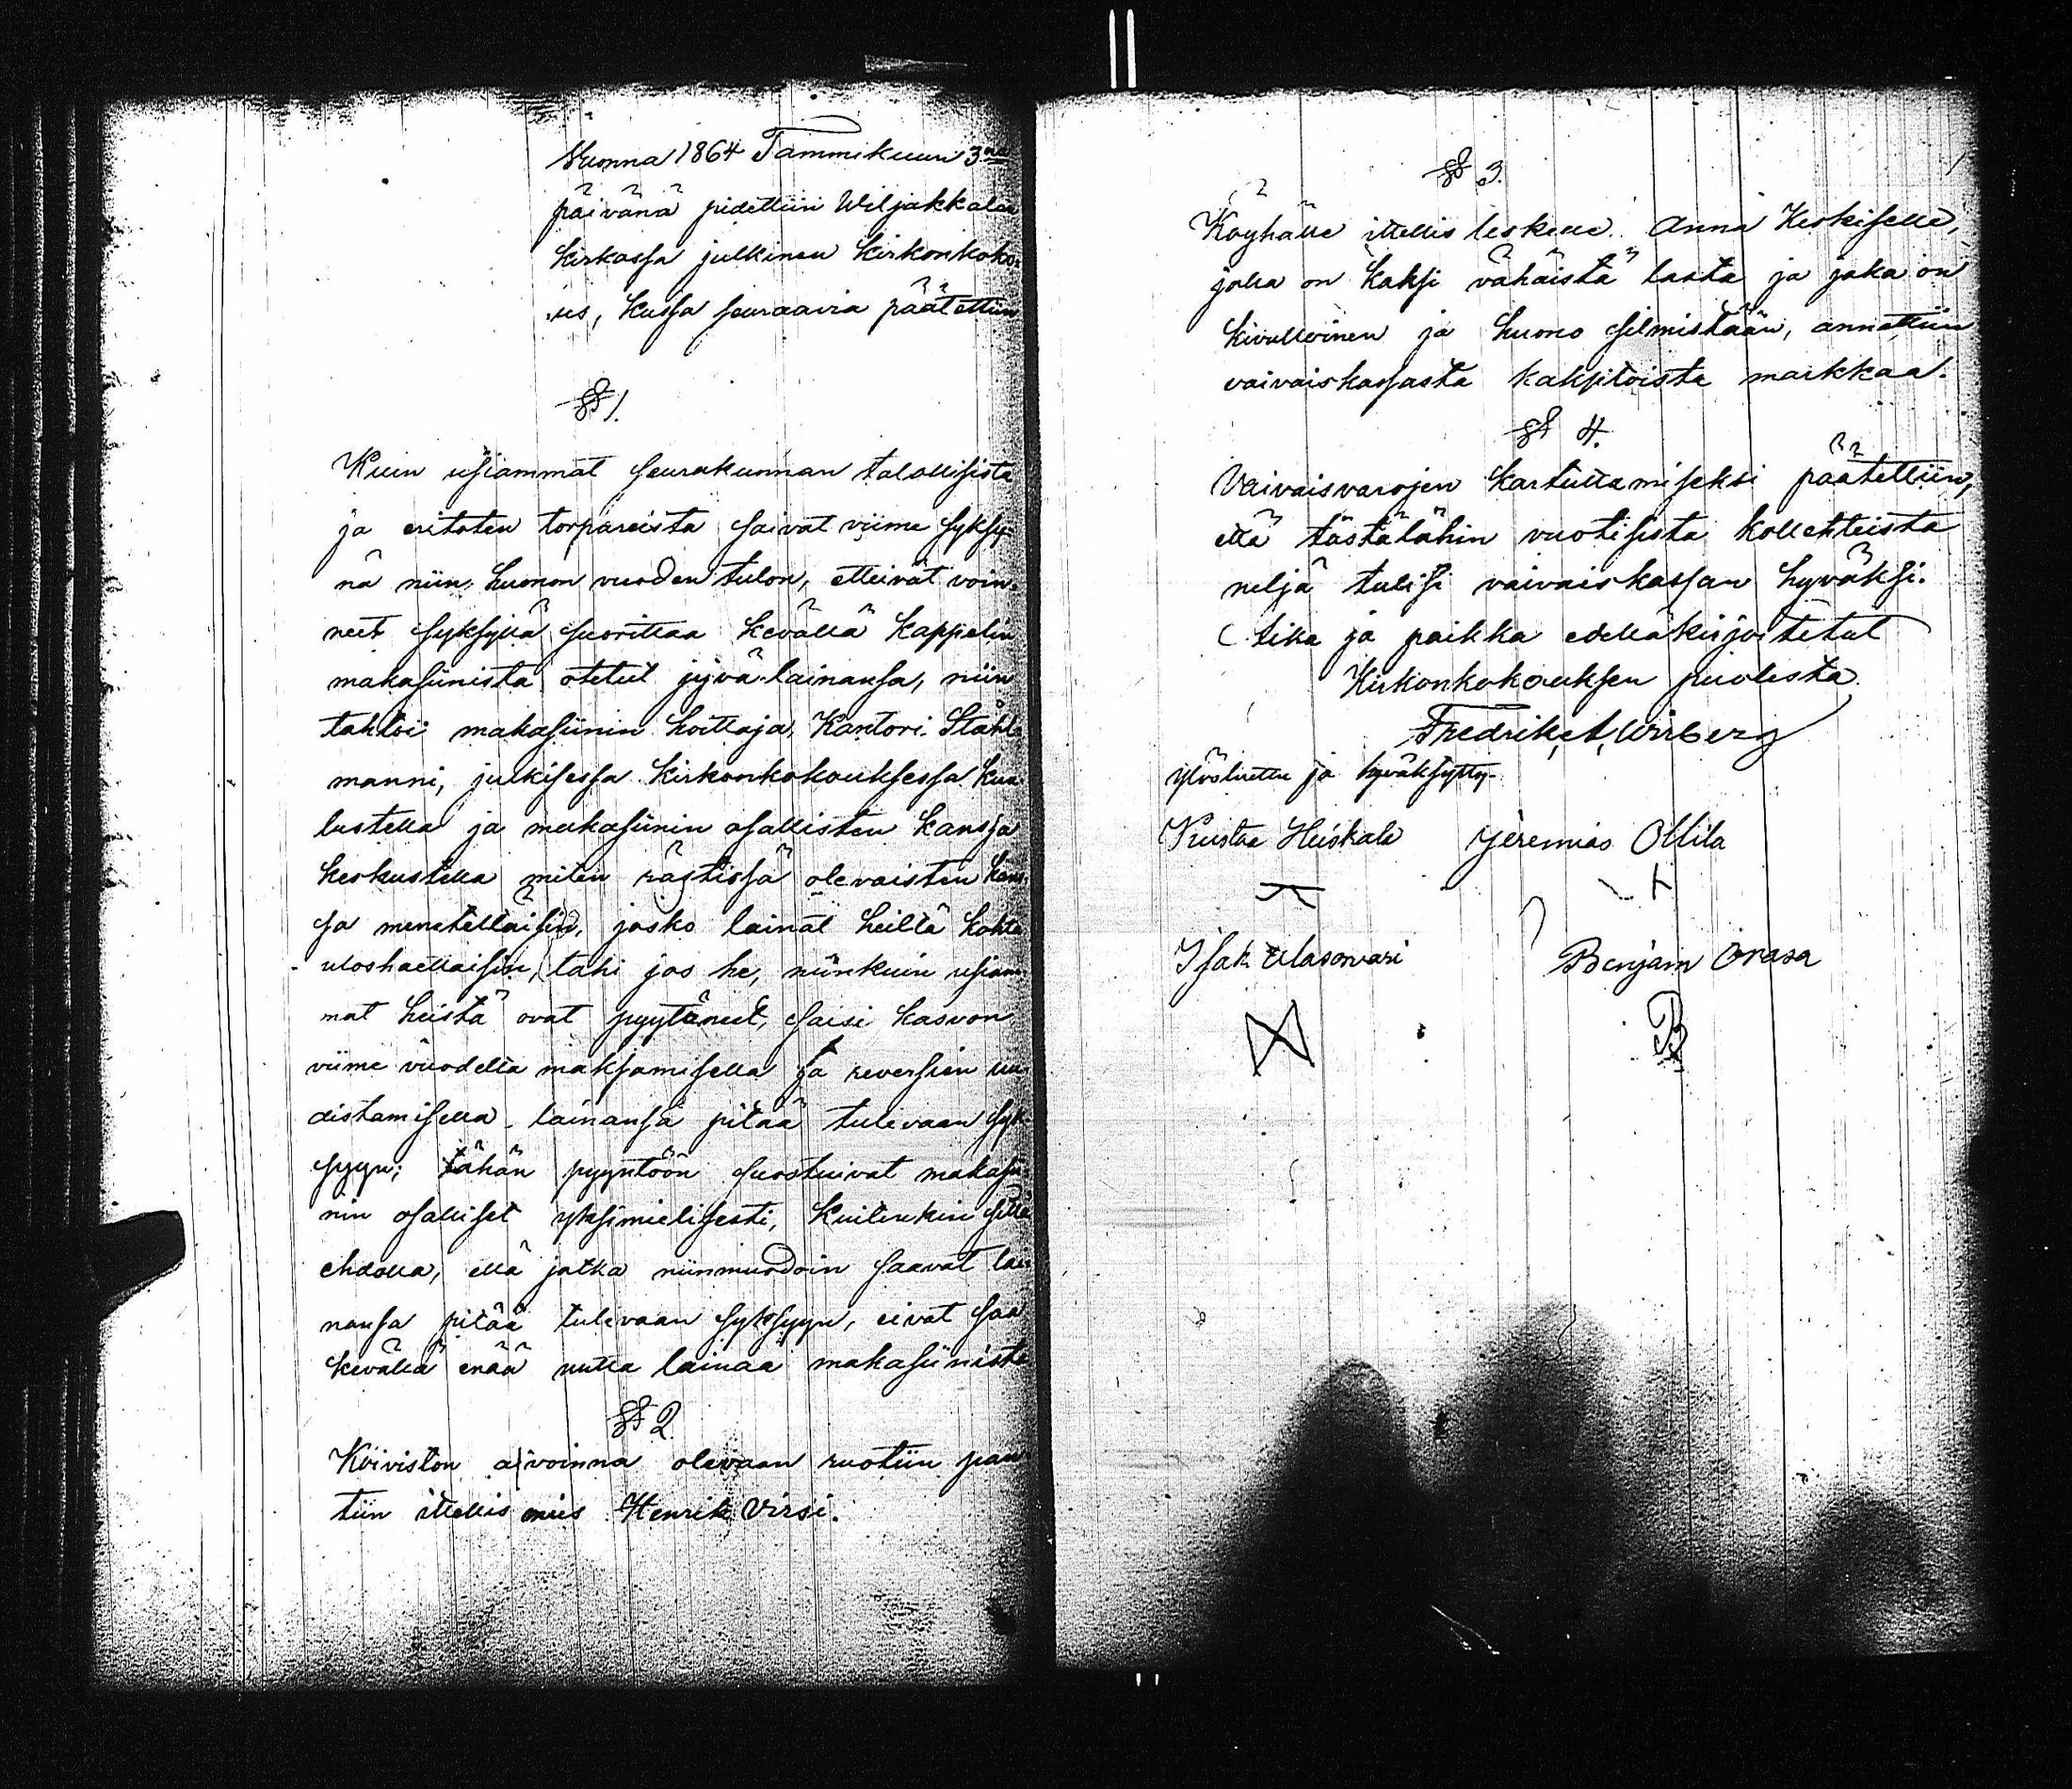 Vuonna 1864 Tammikuun 3na
päivänä pidettiin Wiljakkalan
kirkossa julkinen Kirkonkoko-
us, kussa seuraavia päätettiin
§ 1.
Kuin usiammat seurakunnan talollisista
ja eritoten torpareista saivat viime syksy-
nä niin huonon vuoden tulon, etteivät voin-
neet syksyllä suorittaa keväällä kappelin
makasiinista otetut jyvä-lainansa, niin
tahtoi makasiinin hoittaja, Kantori Ståhl-
manni, julkisessa kirkonkokouksessa kuu-
lustella ja makasiinin osallisten kanssa
keskustella miten rästissä olevaisten kans-
sa menetettäisiin, josko lainat heiltä kohta
uloshaettaisiin, tahi jos he, niinkuin usiam-
mat heistä ovat pyytäneet, saisi kasvon
viime vuodelta maksamisella ja reversien uu-
distamisella lainansa pitää tulevaan syk-
syyn; tähän pyyntöön suostuivat makasii-
nin osalliset yksimielisesti, kuitenkin sillä
ehdolla, että jotka niinmuodoin saavat lai-
nansa pitää tulevaan syksyyn, eivät saa
keväällä enää uutta lainaa makasiinista
§ 2
Koiviston avoinna olevaan ruotiin pan-
tiin itellis mies Henrik Virsi.
§ 3.
Köyhälle itellis leskelle Anna Keskiselle,
jolla on kaksi vähäistä lasta ja joka on
kivulloinen ja huono silmistään, annettiin
vaivaiskassasta kaksitoista markkaa.
§ 4.
Vaivaisvarojen kartuttamiseksi päätettiin,
että tästälähin vuotisista kollehteista
neljä tulisi vaivaiskassan hyväksi.
Aika ja paikka edelläkirjoitetut
Kirkonkokouksen puolesta
Fredrik A. Wirberg
Ylösluettu ja hyväksytty
Kustaa Heiskala Jeremias Ollila
Isak Alasovari Benjam Orasa
B